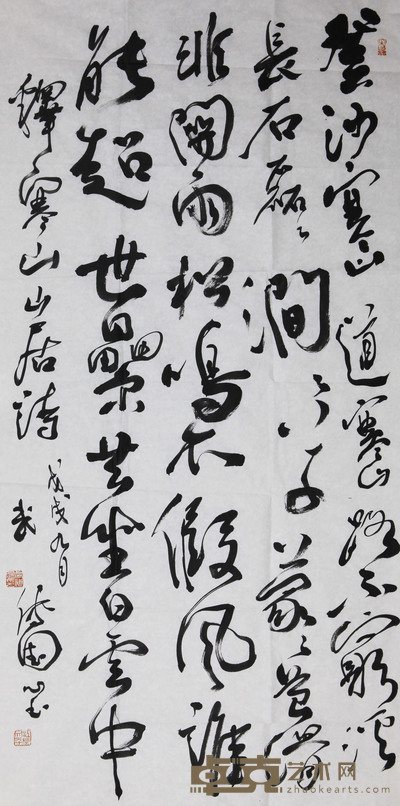 登涉寒山道寒山路不窮溪
長石磊々澗草蒙々苔滑
非關雨松鳴不假風誰
能超世累共坐白雲中
釋寒山山居詩
戊戌九月
卓克艺术网
zhuokearts.com